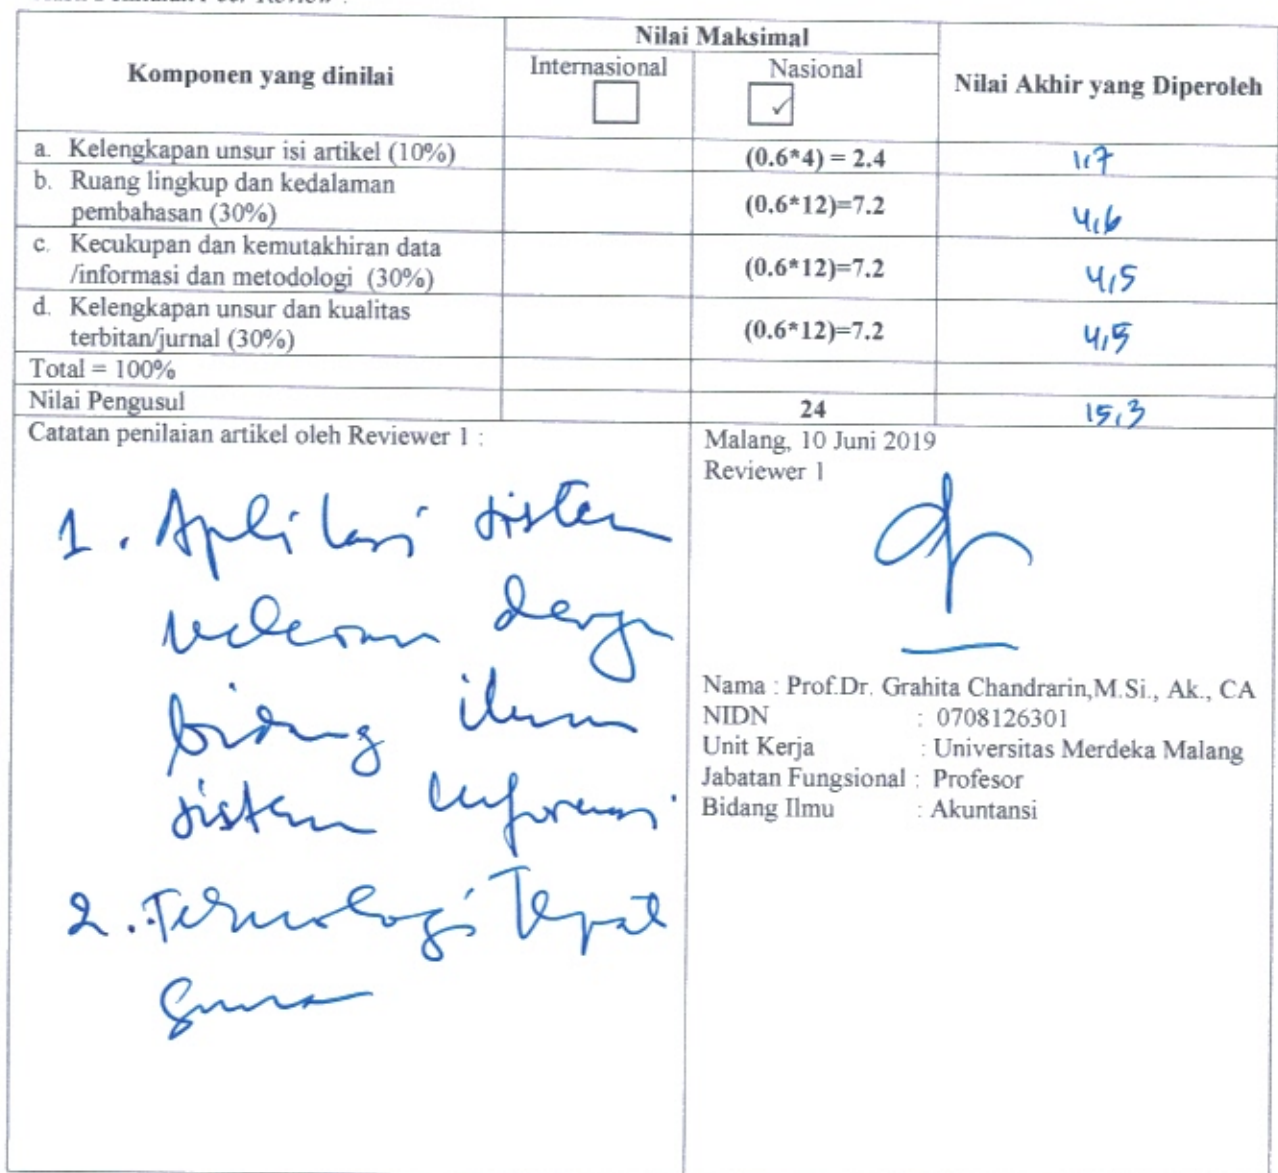 Peer Review :
Nilai Maksimal
Komponen yang dinilai
Internasional
Nasional
✓
Nilai Akhir yang Diperoleh
a. Kelengkapan unsur isi artikel (10%) (0.6*4) = 2.4 1,7
b. Ruang lingkup dan kedalaman
pembahasan (30%) (0.6*12)=7.2 4,6
c. Kecukupan dan kemutakhiran data
/informasi dan metodologi (30%) (0.6*12)=7.2 4,5
d. Kelengkapan unsur dan kualitas
terbitan/jurnal (30%) (0.6*12)=7.2 4,5
Total = 100%
Nilai Pengusul 24 15,3
Catatan penilaian artikel oleh Reviewer 1 :
1. Aplikasi sistem
relevan dengan
bidang ilmu
sistem informasi
2. Teknologi Tepat
Guna
Malang, 10 Juni 2019
Reviewer 1
Nama : Prof.Dr. Grahita Chandrarin,M.Si., Ak., CA
NIDN : 0708126301
Unit Kerja : Universitas Merdeka Malang
Jabatan Fungsional : Profesor
Bidang Ilmu : Akuntansi